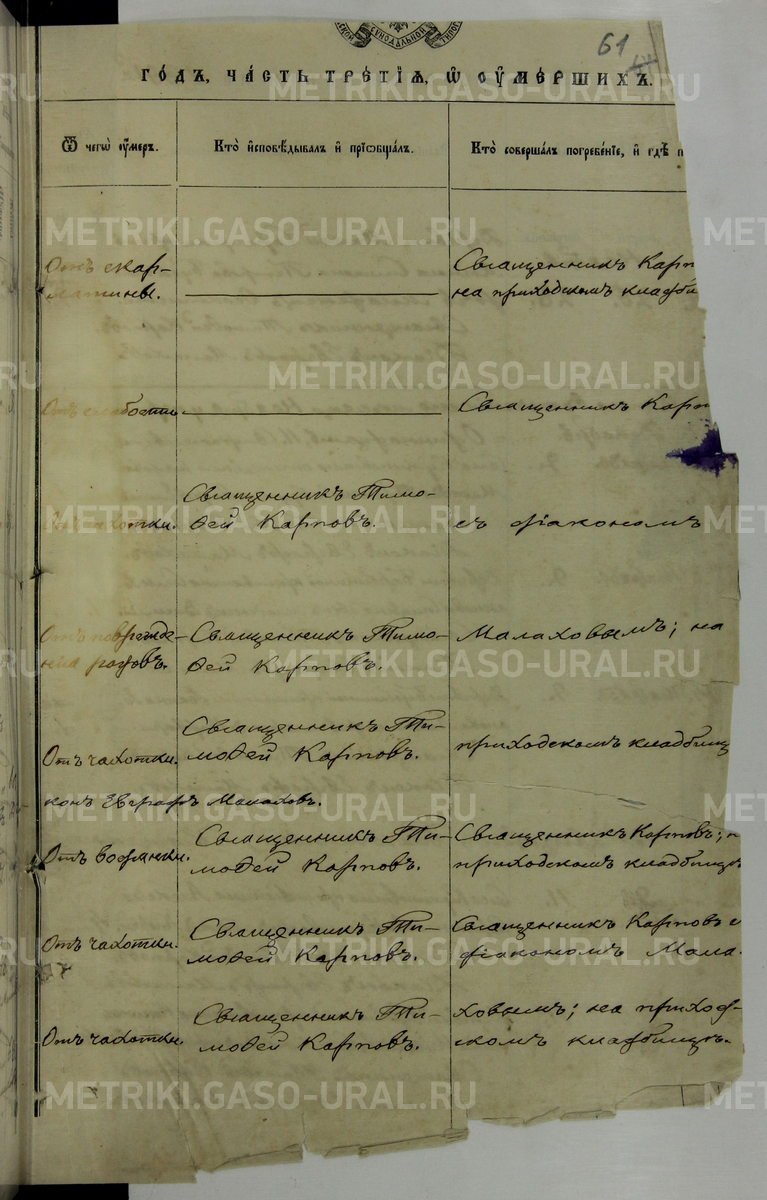 СѴНОДАЛЬНОЙ
61
ГО́ДЪ, ЧА́СТЬ ТРЕ́ТЇѦ, Ѡ҆ ОУ҆МЕ́РШИХЪ.
Ѿ чегѡ̀ оу҆́меръ.
Кто̀ и҆сповѣ́дывалъ и҆ прїѡбща́лъ.
Кто̀ соверша́лъ погребе́нїе, и҆ гдѣ̀ п
Отъ скар-
латины.
Священникъ Карп
на приходскомъ кладби
Отъ слабости.
Священникъ Карп
чахотки.
Священникъ Тимо-
ѳей Карповъ.
съ діакономъ
Отъ поврежде-
нія родовъ.
Священникъ Тимо-
ѳей Карповъ.
Малаховымъ; на
Отъ чахотки.
Священникъ Ти-
моѳей Карповъ.
приходскомъ кладбищ
конъ Евграфъ Малаховъ.
Отъ водянки.
Священникъ Ти-
моѳей Карповъ.
Священникъ Карповъ; н
приходскомъ кладбищѣ
Отъ чахотки.
Священникъ Ти-
моѳей Карповъ.
Священникъ Карповъ с
діакономъ Мала-
Отъ чахотки.
Священникъ Ти-
моѳей Карповъ.
ховымъ; на приход-
скомъ кладбищѣ.
METRIKI.GASO-URAL.RU